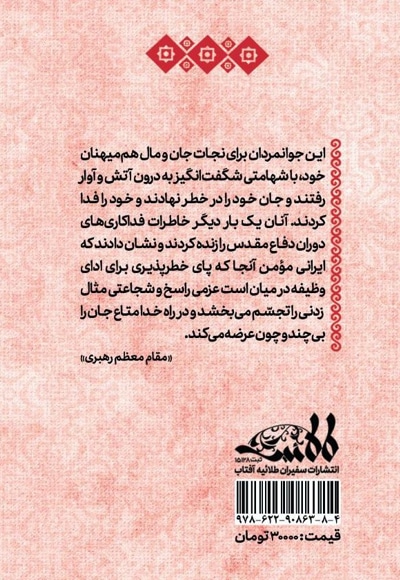 این جوانمردان برای نجات جان و مال هم‌میهنان
خود، با شهامتی شگفت‌انگیز به درون آتش و آوار
رفتند و جان خود را در خطر نهادند و خود را فدا
کردند. آنان یک بار دیگر خاطرات فداکاری‌های
دوران دفاع مقدس را زنده کردند و نشان دادند که
ایرانی مؤمن آنجا که پای خطرپذیری برای ادای
وظیفه در میان است عزمی راسخ و شجاعتی مثال
زدنی را تجسّم می‌بخشد و در راه خدا متاع جان را
بی‌چند و چون عرضه می‌کند.
«مقام معظم رهبری»
ثبت ۱۵۱۲۸
انتشارات سفیران طلائیه آفتاب
۹۷۸-۶۲۲-۹۰۸۶۳-۸-۴
قیمت: ۳۰۰۰۰ تومان